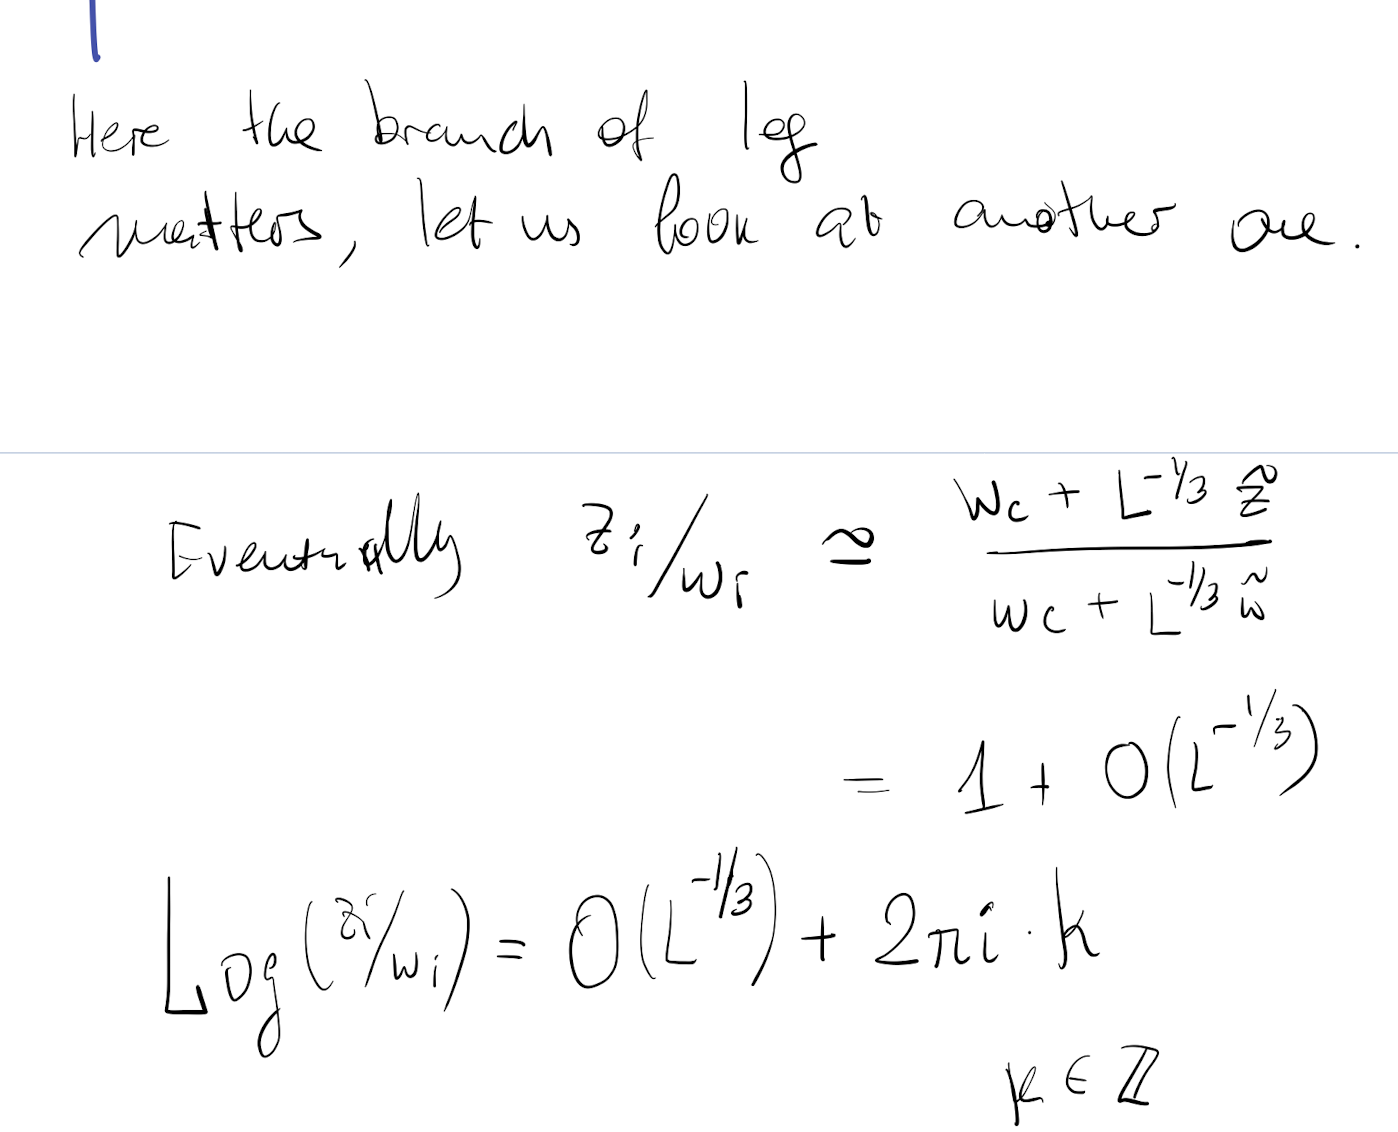 Here the branch of log
matters, let us look at another one.
Eventually z_i/w_i ≃ (w_c + L^{-1/3} z̃)/(w_c + L^{-1/3} w̃)
= 1 + O(L^{-1/3})
Log(z_i/w_i) = O(L^{-1/3}) + 2πi · k
k ∈ ℤ